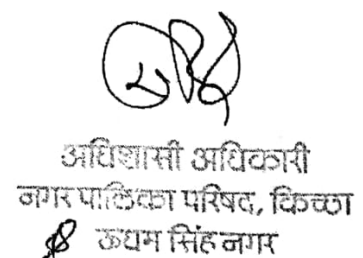 अधिशासी अधिकारी
नगर पालिका परिषद, किच्छा
ऊधम सिंह नगर